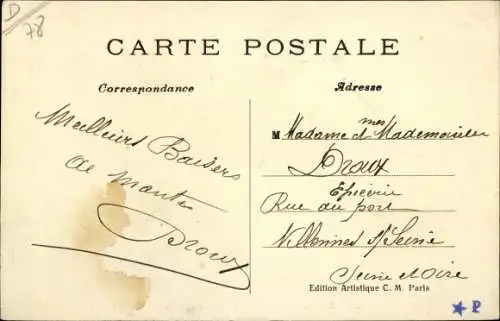 D
78
CARTE POSTALE
Correspondance
Adresse
Meilleurs Baisers
de Mante
Droux
M Madame et Mesdemoiselles
Droux
Epicerie
Rue du port
Villennes s/ Seine
Seine et Oise
Edition Artistique C. M. Paris
★ P